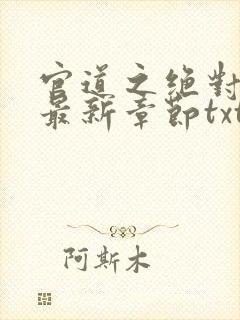 官道之绝對
最新章節txt
阿斯木